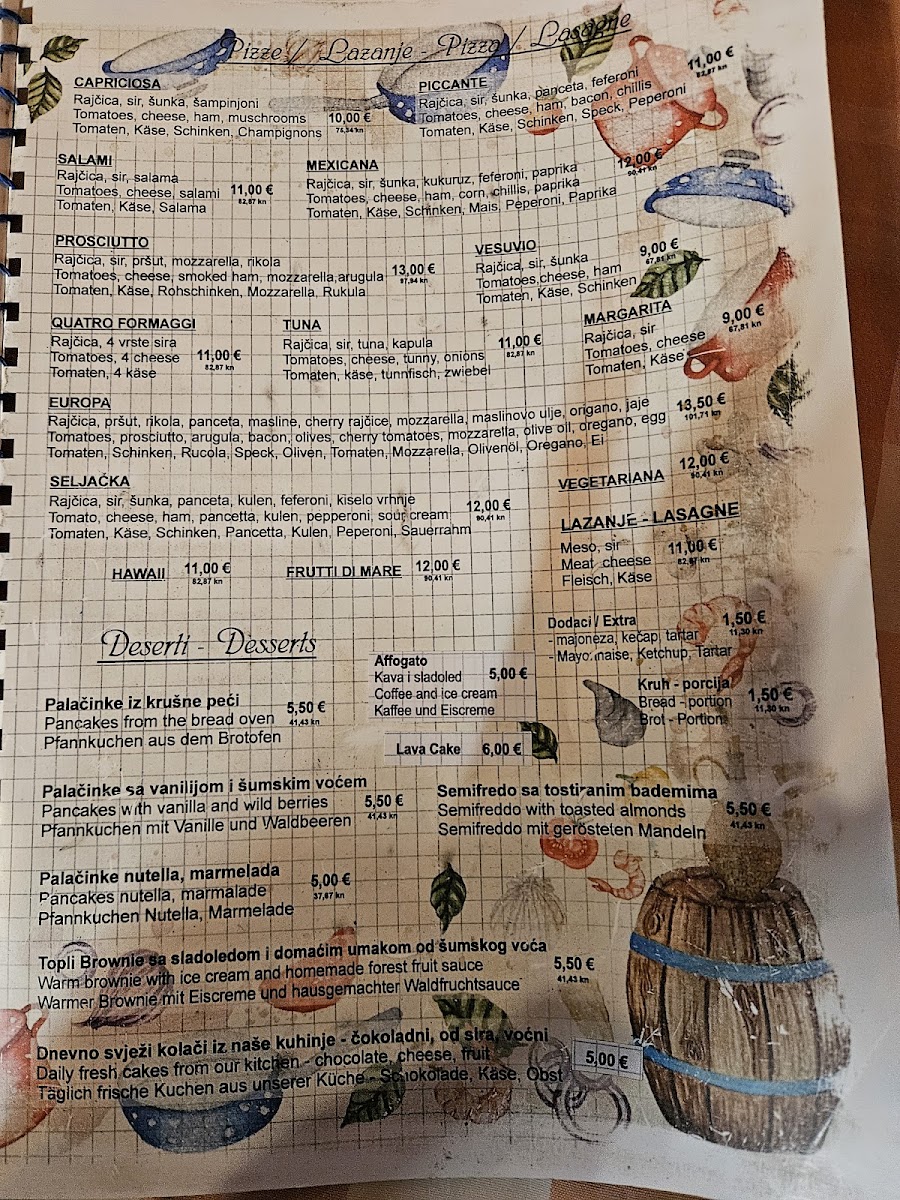 Pizze / Lazanje - Pizza / Lasagne
CAPRICIOSA
Rajčica, sir, šunka, šampinjoni
Tomatoes, cheese, ham, muschrooms
Tomaten, Käse, Schinken, Champignons
10,00 €
75,34 kn
PICCANTE
Rajčica, sir, šunka, panceta, feferoni
Tomatoes, cheese, ham, bacon, chillis
Tomaten, Käse, Schinken, Speck, Peperoni
11,00 €
82,87 kn
SALAMI
Rajčica, sir, salama
Tomatoes, cheese, salami
Tomaten, Käse, Salama
11,00 €
82,87 kn
MEXICANA
Rajčica, sir, šunka, kukuruz, feferoni, paprika
Tomatoes, cheese, ham, corn, chillis, paprika
Tomaten, Käse, Schinken, Mais, Peperoni, Paprika
12,00 €
90,41 kn
PROSCIUTTO
Rajčica, sir, pršut, mozzarella, rikola
Tomatoes, cheese, smoked ham, mozzarella,arugula
Tomaten, Käse, Rohschinken, Mozzarella, Rukula
13,00 €
97,94 kn
VESUVIO
Rajčica, sir, šunka
Tomatoes,cheese, ham
Tomaten, Käse, Schinken
9,00 €
67,81 kn
QUATRO FORMAGGI
Rajčica, 4 vrste sira
Tomatoes, 4 cheese
Tomaten, 4 käse
11,00 €
82,87 kn
TUNA
Rajčica, sir, tuna, kapula
Tomatoes, cheese, tunny, onions
Tomaten, käse, tunnfisch, zwiebel
11,00 €
82,87 kn
MARGARITA
Rajčica, sir
Tomatoes, cheese
Tomaten, Käse
9,00 €
67,81 kn
EUROPA
Rajčica, pršut, rikola, panceta, masline, cherry rajčice, mozzarella, maslinovo ulje, origano, jaje
Tomatoes, prosciutto, arugula, bacon, olives, cherry tomatoes, mozzarella, olive oil, oregano, egg
Tomaten, Schinken, Rucola, Speck, Oliven, Tomaten, Mozzarella, Olivenöl, Oregano, Ei
13,50 €
101,71 kn
SELJAČKA
Rajčica, sir, šunka, panceta, kulen, feferoni, kiselo vrhnje
Tomato, cheese, ham, pancetta, kulen, pepperoni, sour cream
Tomaten, Käse, Schinken, Pancetta, Kulen, Peperoni, Sauerrahm
12,00 €
90,41 kn
VEGETARIANA
12,00 €
90,41 kn
LAZANJE - LASAGNE
Meso, sir
Meat, cheese
Fleisch, Käse
11,00 €
82,87 kn
HAWAII
11,00 €
82,87 kn
FRUTTI DI MARE
12,00 €
90,41 kn
Dodaci / Extra
- majoneza, kečap, tartar
- Mayonnaise, Ketchup, Tartar
1,50 €
11,30 kn
Kruh - porcija
Bread - portion
Brot - Portion
1,50 €
11,30 kn
Deserti - Desserts
Affogato
Kava i sladoled
Coffee and ice cream
Kaffee und Eiscreme
5,00 €
Palačinke iz krušne peći
Pancakes from the bread oven
Pfannkuchen aus dem Brotofen
5,50 €
41,43 kn
Lava Cake 6,00 €
Palačinke sa vanilijom i šumskim voćem
Pancakes with vanilla and wild berries
Pfannkuchen mit Vanille und Waldbeeren
5,50 €
41,43 kn
Semifredo sa tostiranim bademima
Semifreddo with toasted almonds
Semifreddo mit gerösteten Mandeln
5,50 €
41,43 kn
Palačinke nutella, marmelada
Pancakes nutella, marmalade
Pfannkuchen Nutella, Marmelade
5,00 €
37,67 kn
Topli Brownie sa sladoledom i domaćim umakom od šumskog voća
Warm brownie with ice cream and homemade forest fruit sauce
Warmer Brownie mit Eiscreme und hausgemachter Waldfruchtsauce
5,50 €
41,43 kn
Dnevno svježi kolači iz naše kuhinje - čokoladni, od sira, voćni
Daily fresh cakes from our kitchen - chocolate, cheese, fruit
Täglich frische Kuchen aus unserer Küche - Schokolade, Käse, Obst
5,00 €